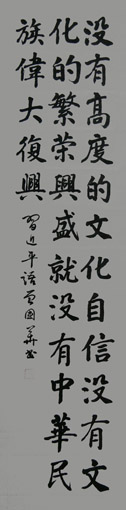 没有高度的文化自信没有文
化的繁荣興盛就没有中華民
族偉大復興
習近平语